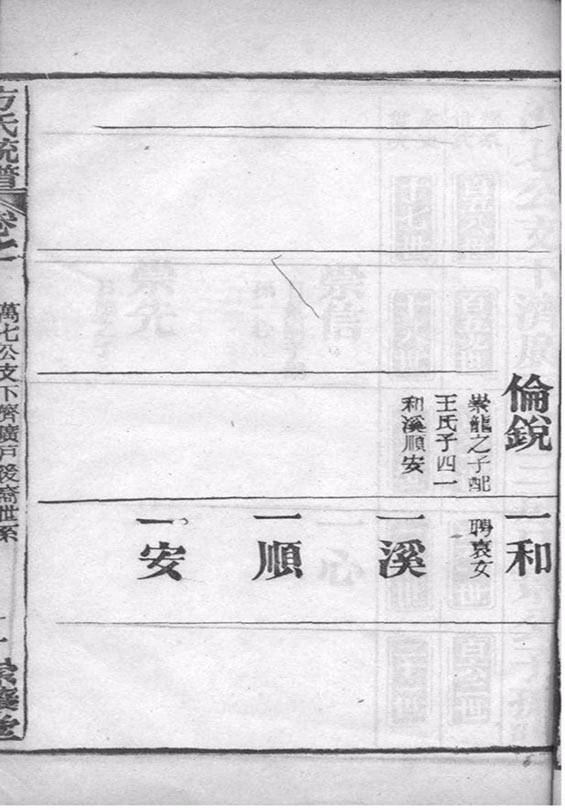 倫銳
崇龍之子配
王氏子四一
和溪順安
一和
聘袁女
一溪
一順
一安
方氏統譜
卷之
萬七公支下濟廣戶後裔世系